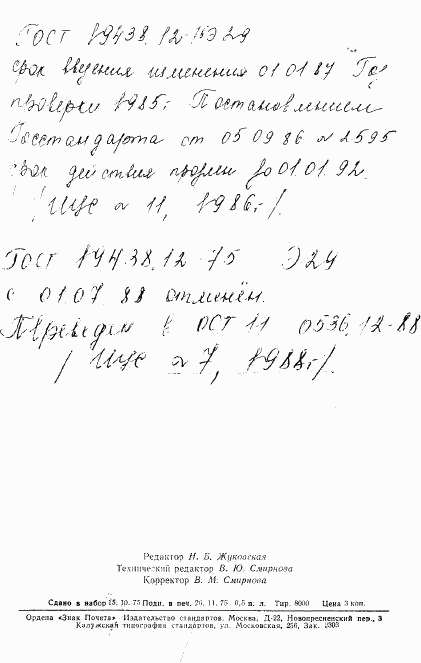 ГОСТ 19438.12-75 Э29
срок введения изменения 01 01 87 Год
проверки 1985г Постановлением
Госстандарта от 05 09 86 № 2595
срок действия продлен до 01.01.92.
/ИУС № 11, 1986г/.
ГОСТ 19438.12-75 Э29
с 01.07 88 отменён.
Переведен в ОСТ 11 0536.12-88
/ИУС № 7, 1988г/.
Редактор Н. Б. Жуковская
Технический редактор В. Ю. Смирнова
Корректор В. М. Смирнова
Сдано в набор 15. 10. 75 Подп. в печ. 26. 11. 75 0,5 п. л. Тир. 8000 Цена 3 коп.
Ордена «Знак Почета» Издательство стандартов. Москва, Д-22, Новопресненский пер., 3
Калужская типография стандартов, ул. Московская, 256, Зак. 2303